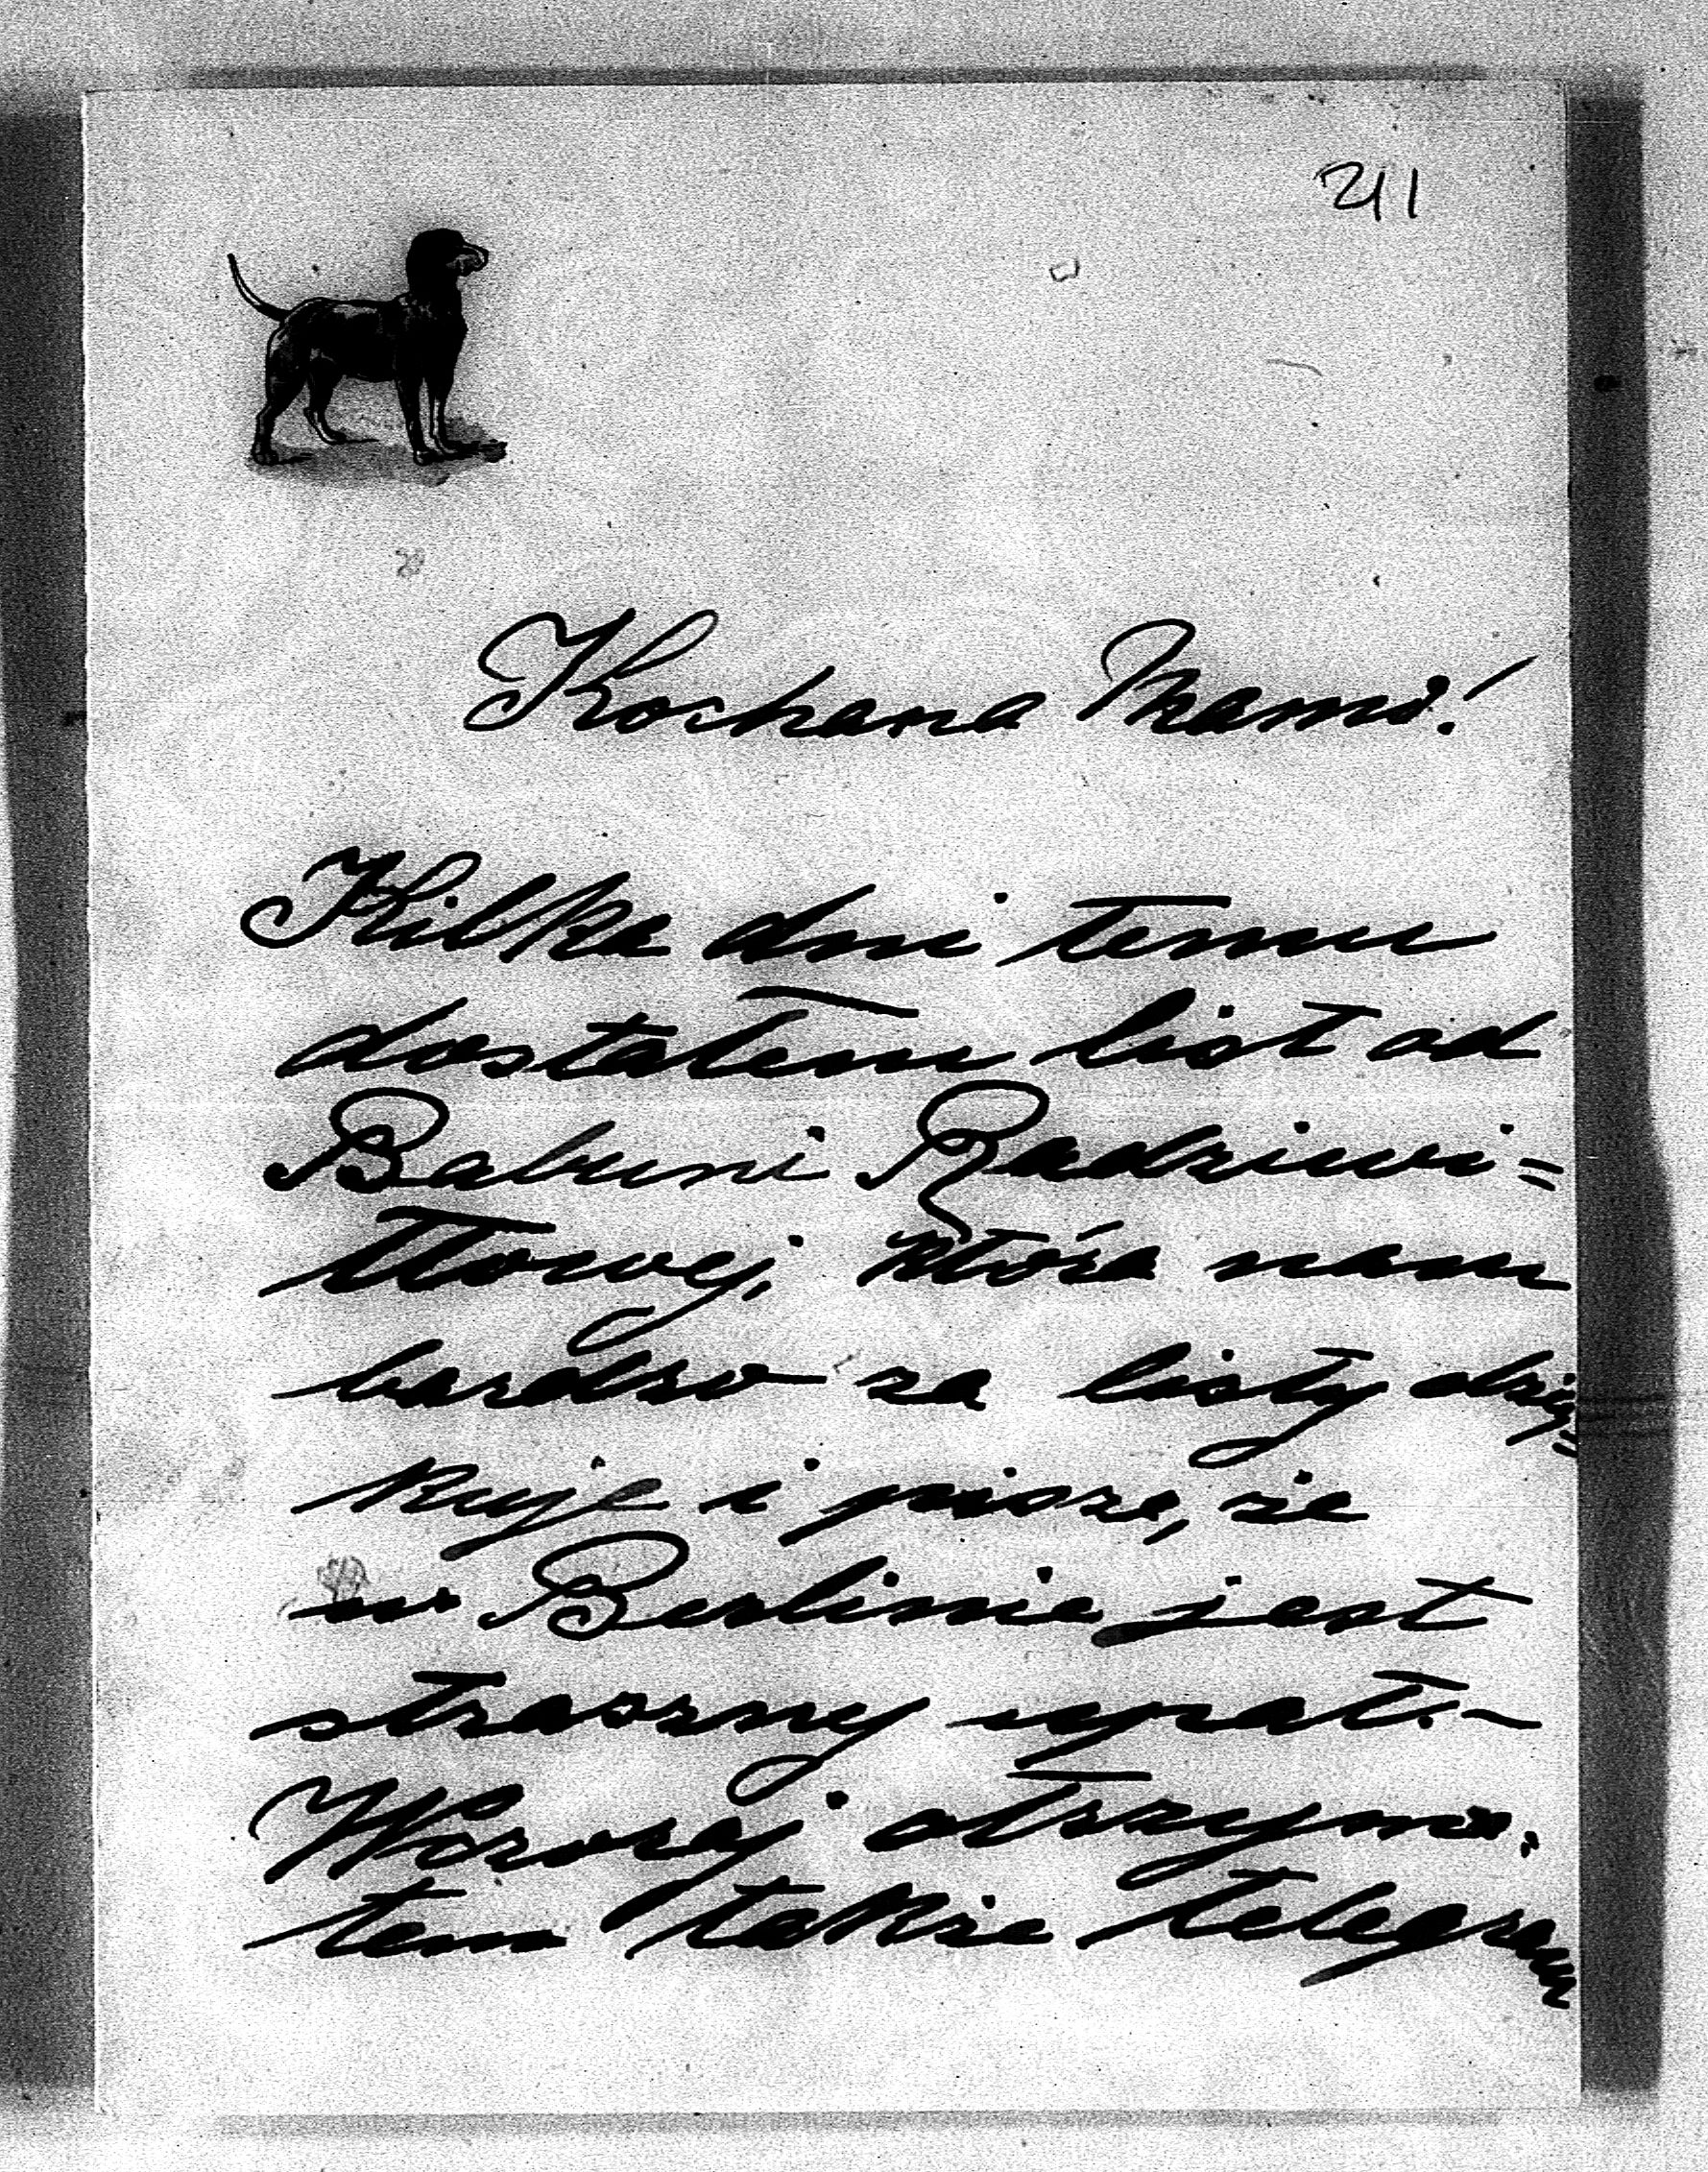 211
Kochana Mamo!
Kilka dni temu
dostałem list od
Babuni Radziwi=
łłowej, która nam
bardzo za listy dzię=
kuje i pisze, że
w Berlinie jest
straszny upał. –
Wczoraj otrzyma.
łem także telegram